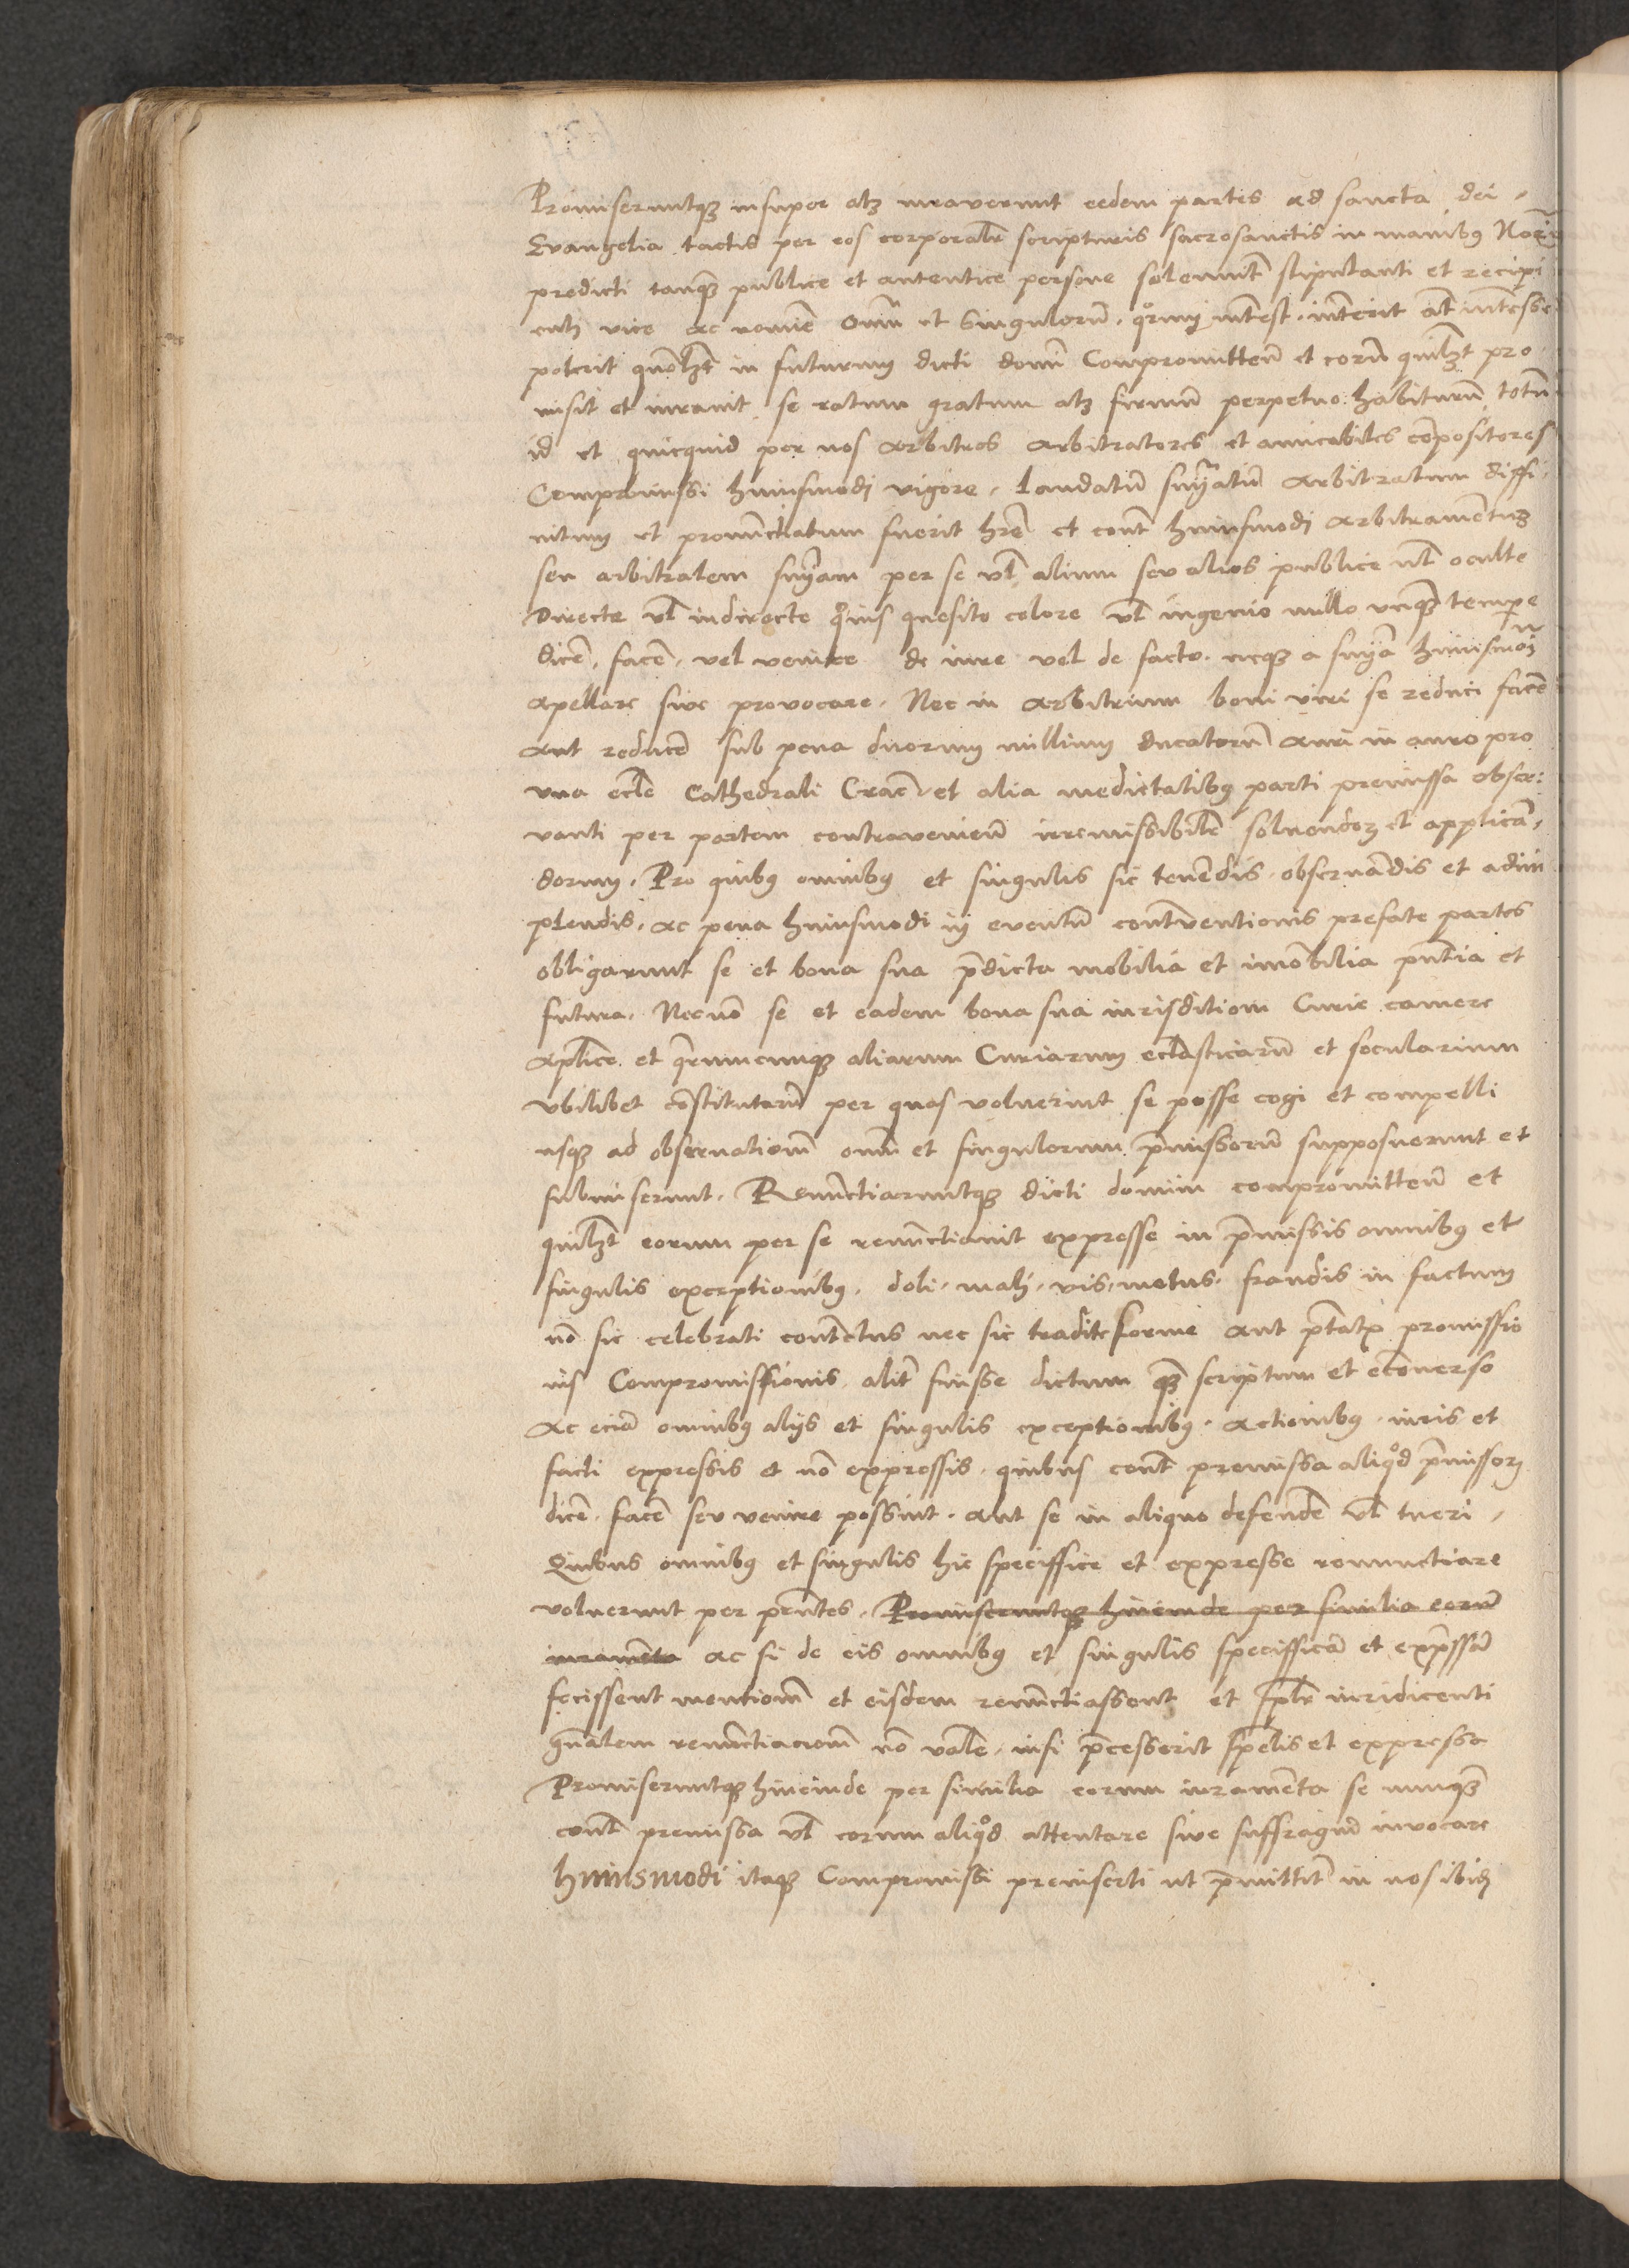 Promiseruntqʒ insuper atqʒ iuraverunt eedem partes ad sancta dei
Evangelia tactis per eos corporalr̄ scripturis sacrosanctis in manibꝫ Norij
predicti tanqꝫ publice et autentice persone solemnit̄ stipulanti et recipi
entis vice ac nomīe Oniū et Singulorū quorum int̄est int̄erit aut int̄esse
poterit quōlꝫt in futurum dicti domī Compromitteñ et eorū quilꝫt pro
misit et iuravit se ratum gratum atqʒ firmū perpetuo habiturū totū
id et quicquid per nos Arbitros Arbitratores et amicabiles cōpositores
Compromissi huiusmodi vigore laudatū sniatū Arbitratum diffi
nitum et pronūctiatum fuerit hr̄e et cont̄ huiusmodi Arbitramentum
seu arbitralem sniam per se vl̄ alium seu alios publice vl̄ oculte
Directe vl̄ indirecte quovis quesito colore vl̄ ingenio nullo vnqꝫ tempe
dicē, facē, vel venire de iure vel de facto neqꝫ a snia huiusmōi
apellare sive provocare. Nec in Arbitrium boni viri se reduci facē
Aut reducē sub pena duorum millium ducatorū Auri in auro pro
vna ecl̄e Cathedrali Crac̄ et alia medietatibꝫ parti premissa obser:
vanti per partem contraveniēn irremissibilr̄ solvendoꝝ et applicā,
dorum. Pro quibꝫ omnibꝫ et singulis sic tenēdis observandis et adim
plendis, ac pena huiusmodi in eventū contrventionis prefate partes
obligarunt se et bona sua p̄dicta mobilia et imobilia pn̄tia et
futura. Necnō se et eadem bona sua iurisditiom̄ Curie camere
Aplice et qr̄umcumqꝫ aliarum Curiarum ecl̄asticarū et secularium
vbilibet cōstitutarū per quas voluerint se posse cogi et compelli
usqꝫ ad observatiom̄ oniū et singulorum p̄missorū supposuerunt et
submiserunt. Renūctiaruntqꝫ dicti domini compromitteñ et
quilꝫt eorum per se renūctiavit expresse in p̄missis omnibꝫ et
singulis exceptionibꝫ, doli, mali, vis, metus, fraudis in factum
nō sic celebrati contrctus nec sic tradite forme Aut p̄tatꝭ promissio
nis Compromissionis alit̄ fuisse dictum qꝫ scriptum et ecōverso
Ac eciā omnibꝫ alijs et singulis exceptionibꝫ Actionibꝫ iuris et
facti expressis et nō expressis quibus cont̄ premissa aliqᵒd p̄missoꝝ
dicē, facē seu venire possint. Aut se in aliquo defendē vl̄ tueri,
Quibus omnibꝫ et singulis hic speciffice et expresse renunctiare
voluerunt per pn̄tes. Promiseruntqꝫ hincinde per similia eorū
iuramēta ac si de eis omnibꝫ et singulis specifficā et exp̄ssā
fecissent mentiom̄ et eisdem renūctiassent et spl̄r iuridicenti
gn̄alem renūctiaciom̄ nō valē, nisi p̄cesserit spēlis et expressa
Promiseruntqꝫ hincinde per similia eorum iuramēta se nunqꝫ
cont̄ premissa vl̄ eorum aliqᵒd attentare sive suffragiū invocare
huiusmodi itaqꝫ Compromissi preinserti ut p̄mittit̄ in nos ibidꝫ